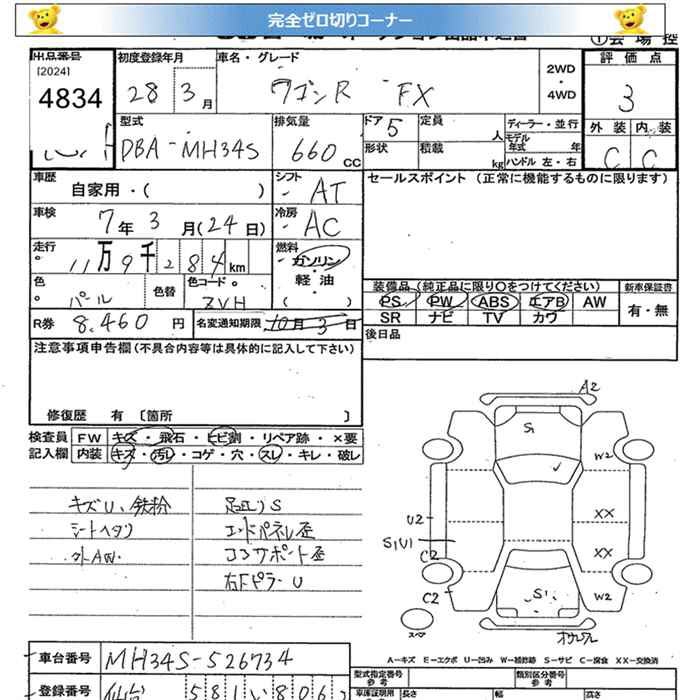 完全ゼロ切りコーナー
出品番号
[2024]
4834
初度登録年月
28 3月
車名・グレード
ワゴンR FX
2WD
・
4WD
評価点
3
型式
DBA-MH34S
排気量
660cc
ドア
5
定員
人
形状
積載
kg
ディーラー・並行
モデル
年式 年
ハンドル 左・右
外装 内装
C C
車歴
自家用・( )
シフト
AT
セールスポイント(正常に機能するものに限ります)
車検
7年3月(24日)
冷房
AC
走行
11万9千284km
燃料
ガソリン
・
軽油
( )
色
パール
色替
色コード
ZVH
装備品(純正品に限り〇をつけてください)
PS PW ABS エアB AW
SR ナビ TV カワ
新車保証書
有・無
R券 8.460円
名変通知期限 10月3日
後日品
注意事項申告欄(不具合内容等は具体的に記入して下さい)
修復歴 有 〔箇所 〕
検査員
記入欄
FW キズ・飛石・ヒビ割・リペア跡・×要
内装 キズ・汚レ・コゲ・穴・スレ・キレ・破レ
キズU、鉄粉
シートヘタリ
外AW
足廻りS
エンドパネル歪
コアサポート歪
右Fピラー U
A2
S1
W2
U2
XX
S1U1
C2
XX
C2
S1
W2
スペア
A-キズ E-エクボ U-凹み W-補修跡 S-サビ C-腐食 XX-交換済
車台番号 MH34S-526734
登録番号 仙台 581い806
型式指定番号
参考
類別区分番号
参考
車庫証明用
参考
長さ
幅
高さ